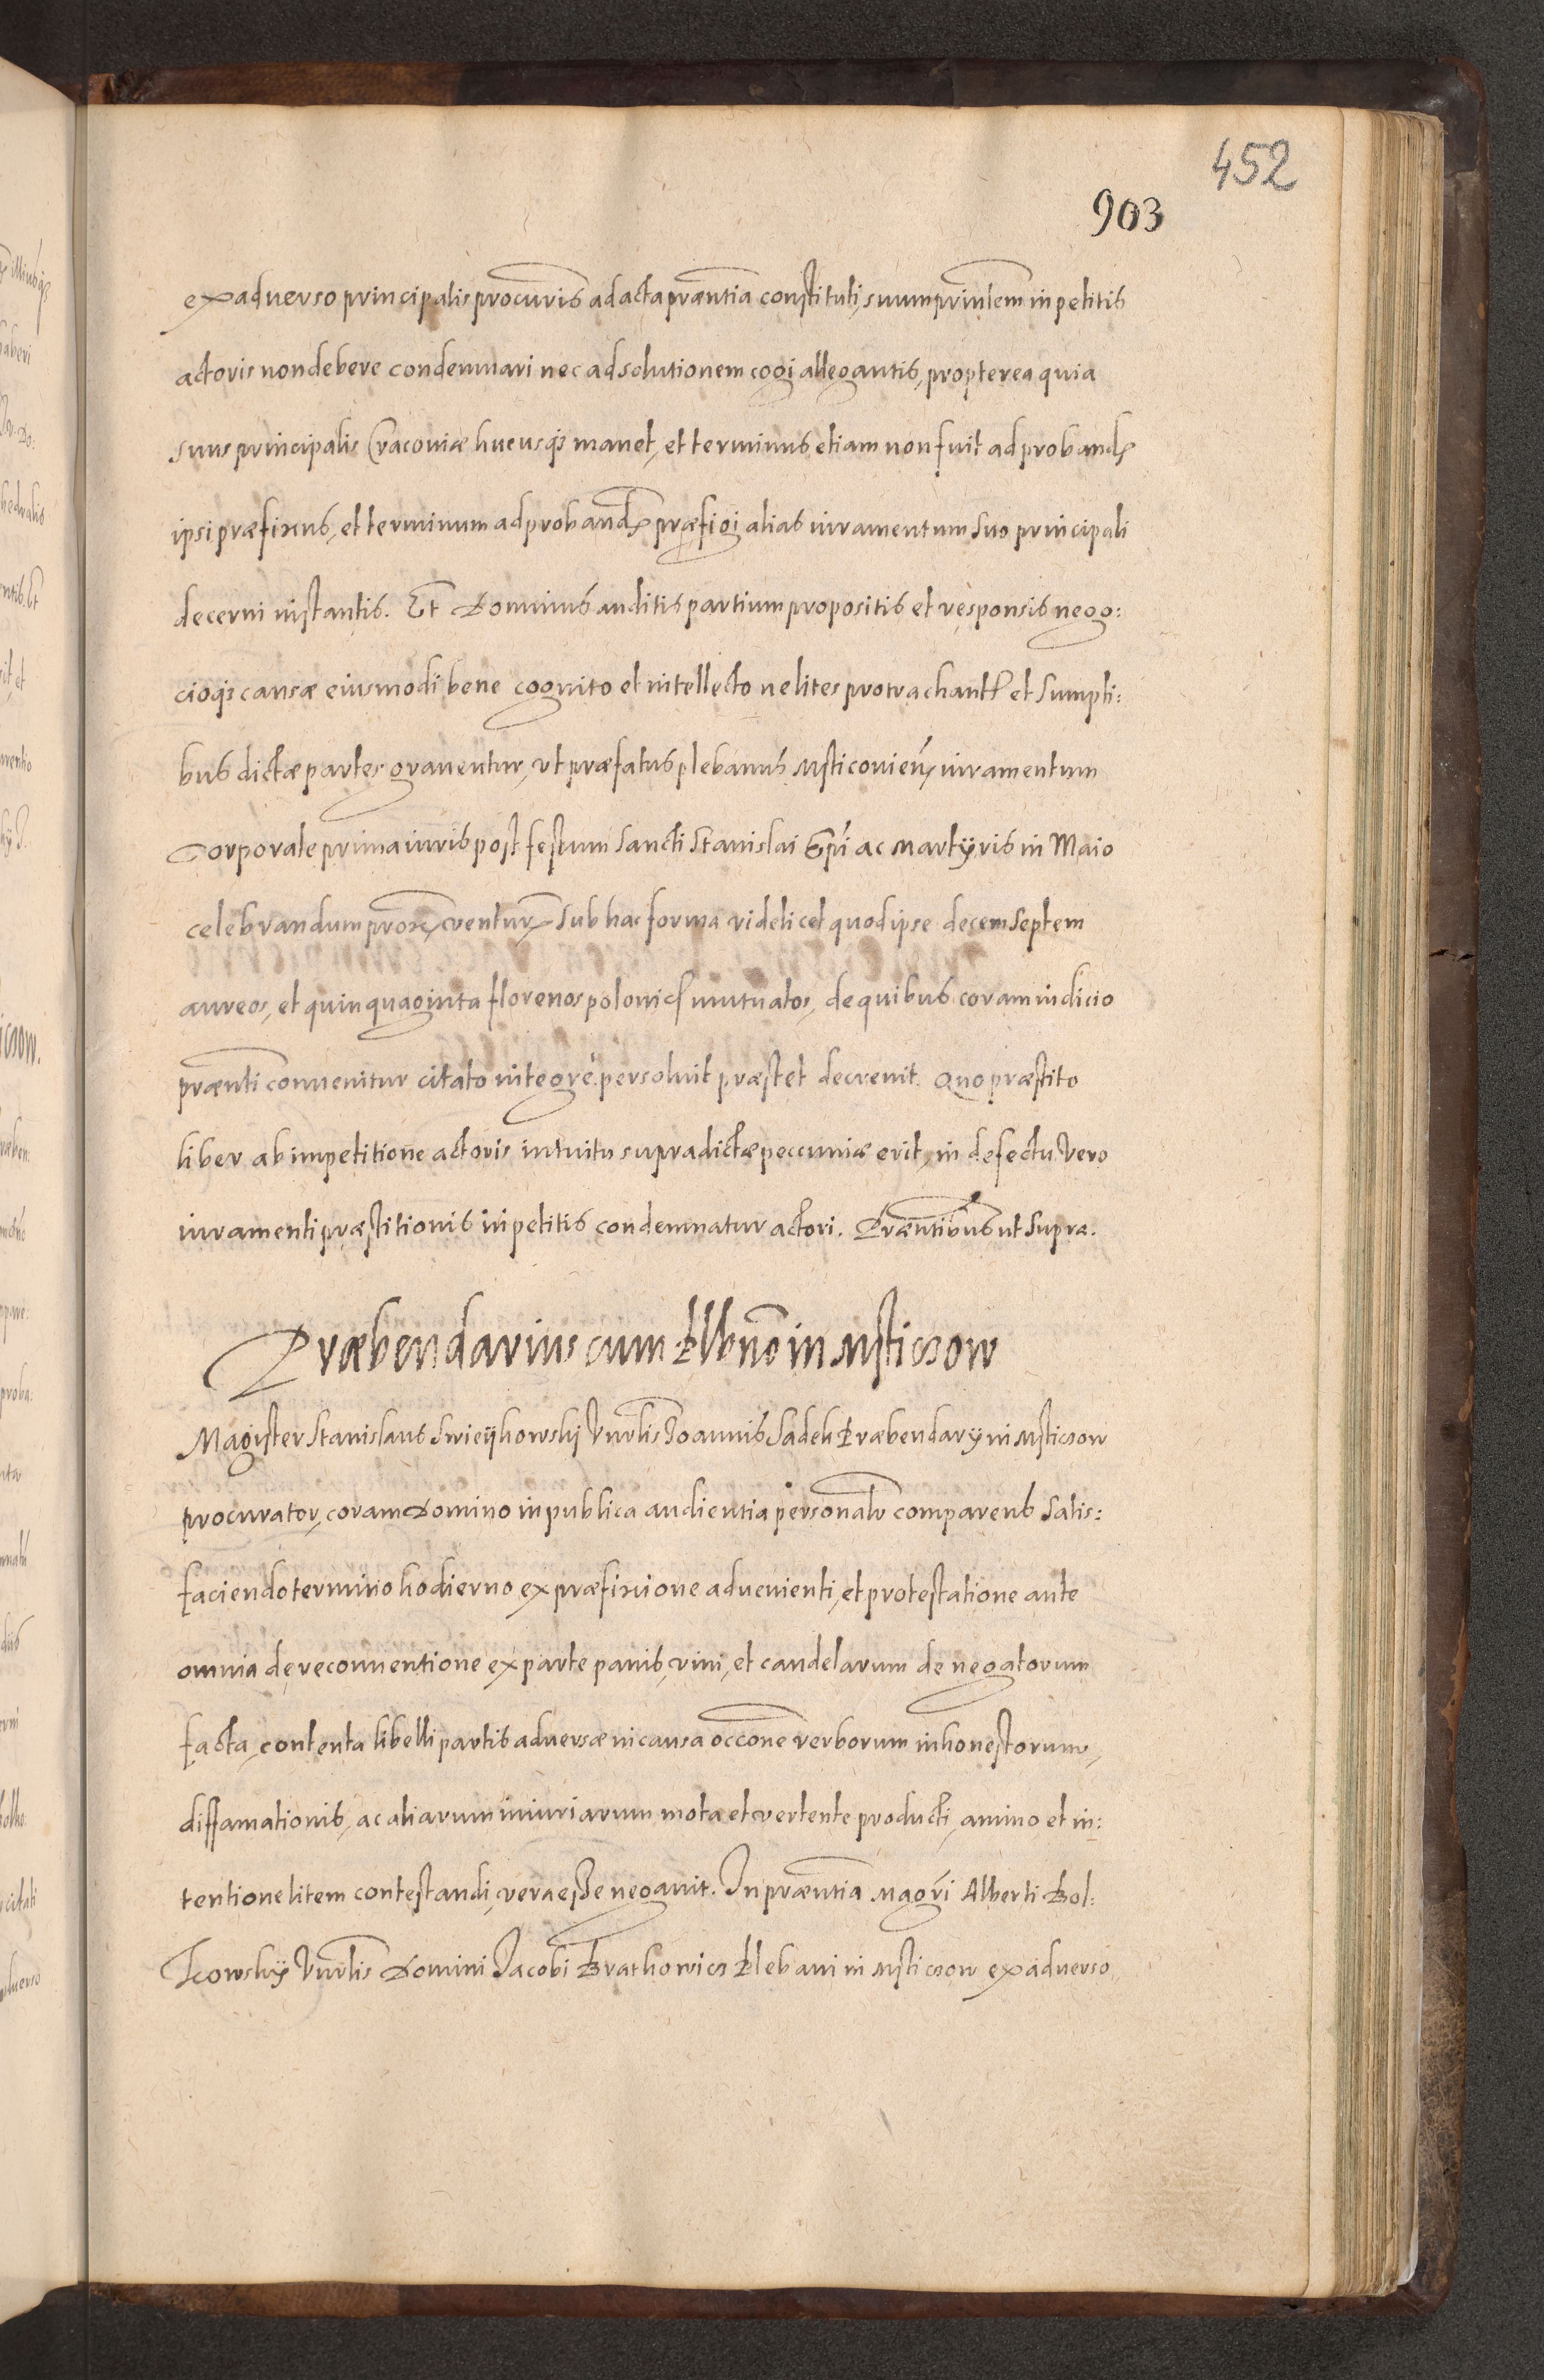 452
903
ex aduerso principalis procuris ad acta præntia constituti, suum prinlem in petitis
actoris non debere condemnari nec ad solutionem cogi allegantis, propterea quia
suus principalis Cracouiæ hucusqз manet, et terminus etiam non fuit ad proband
ipsi præfixus, et terminum ad proband præfigi alias iuramentum suo principali
decerni instantis. Et Dominus auditis partium propositis et responsis nego:
cioqз causæ eiusmodi bene cognito et intellecto ne lites protrachantr et sumpti:
bus dictæ partes grauentur, vt præfatus plebanus Msticouien, iuramentum
Corporale prima iuris post festum Sancti Stanislai Epi ac Martÿris in Maio
celebrandum prox, ventur, sub hac forma videlicet quod ipse decem septem
aureos, et quinquaginta florenos polonic mutuatos, de quibus coram iudicio
prænti conuenitur citato integrè persoluit præstet decreuit. Quo præstito
liber ab impetitione actoris intuitu supradictæ peccuniæ erit, in defectu vero
iuramenti præstitionis in petitis condemnatur actori. Præntibus ut supra.
Præbendarius cum Plbno in Msticzow
Magister Stanislaus Swieÿkowskj Vnrlis Joannis Sadek Præbendarÿ in Msticzow
procurator, coram Domino in publica audientia personalr comparens satis:
faciendo termino hodierno ex præfixione aduenienti, et protestatione ante
omnia de reconuentione ex parte panis, vini, et candelarum denegatorum
facta, contenta libelli partis aduersæ in causa occone verborum inhonestorum,
diffamationis, ac aliarum iniuriarum mota et vertente producti, animo et in:
tentione litem contestandi, vera esse negauit. In præntia Magri Alberti Bol:
kowskÿ Vnrlis Domini Jacobi Brathowicz Plebani in Msticzow ex aduerso